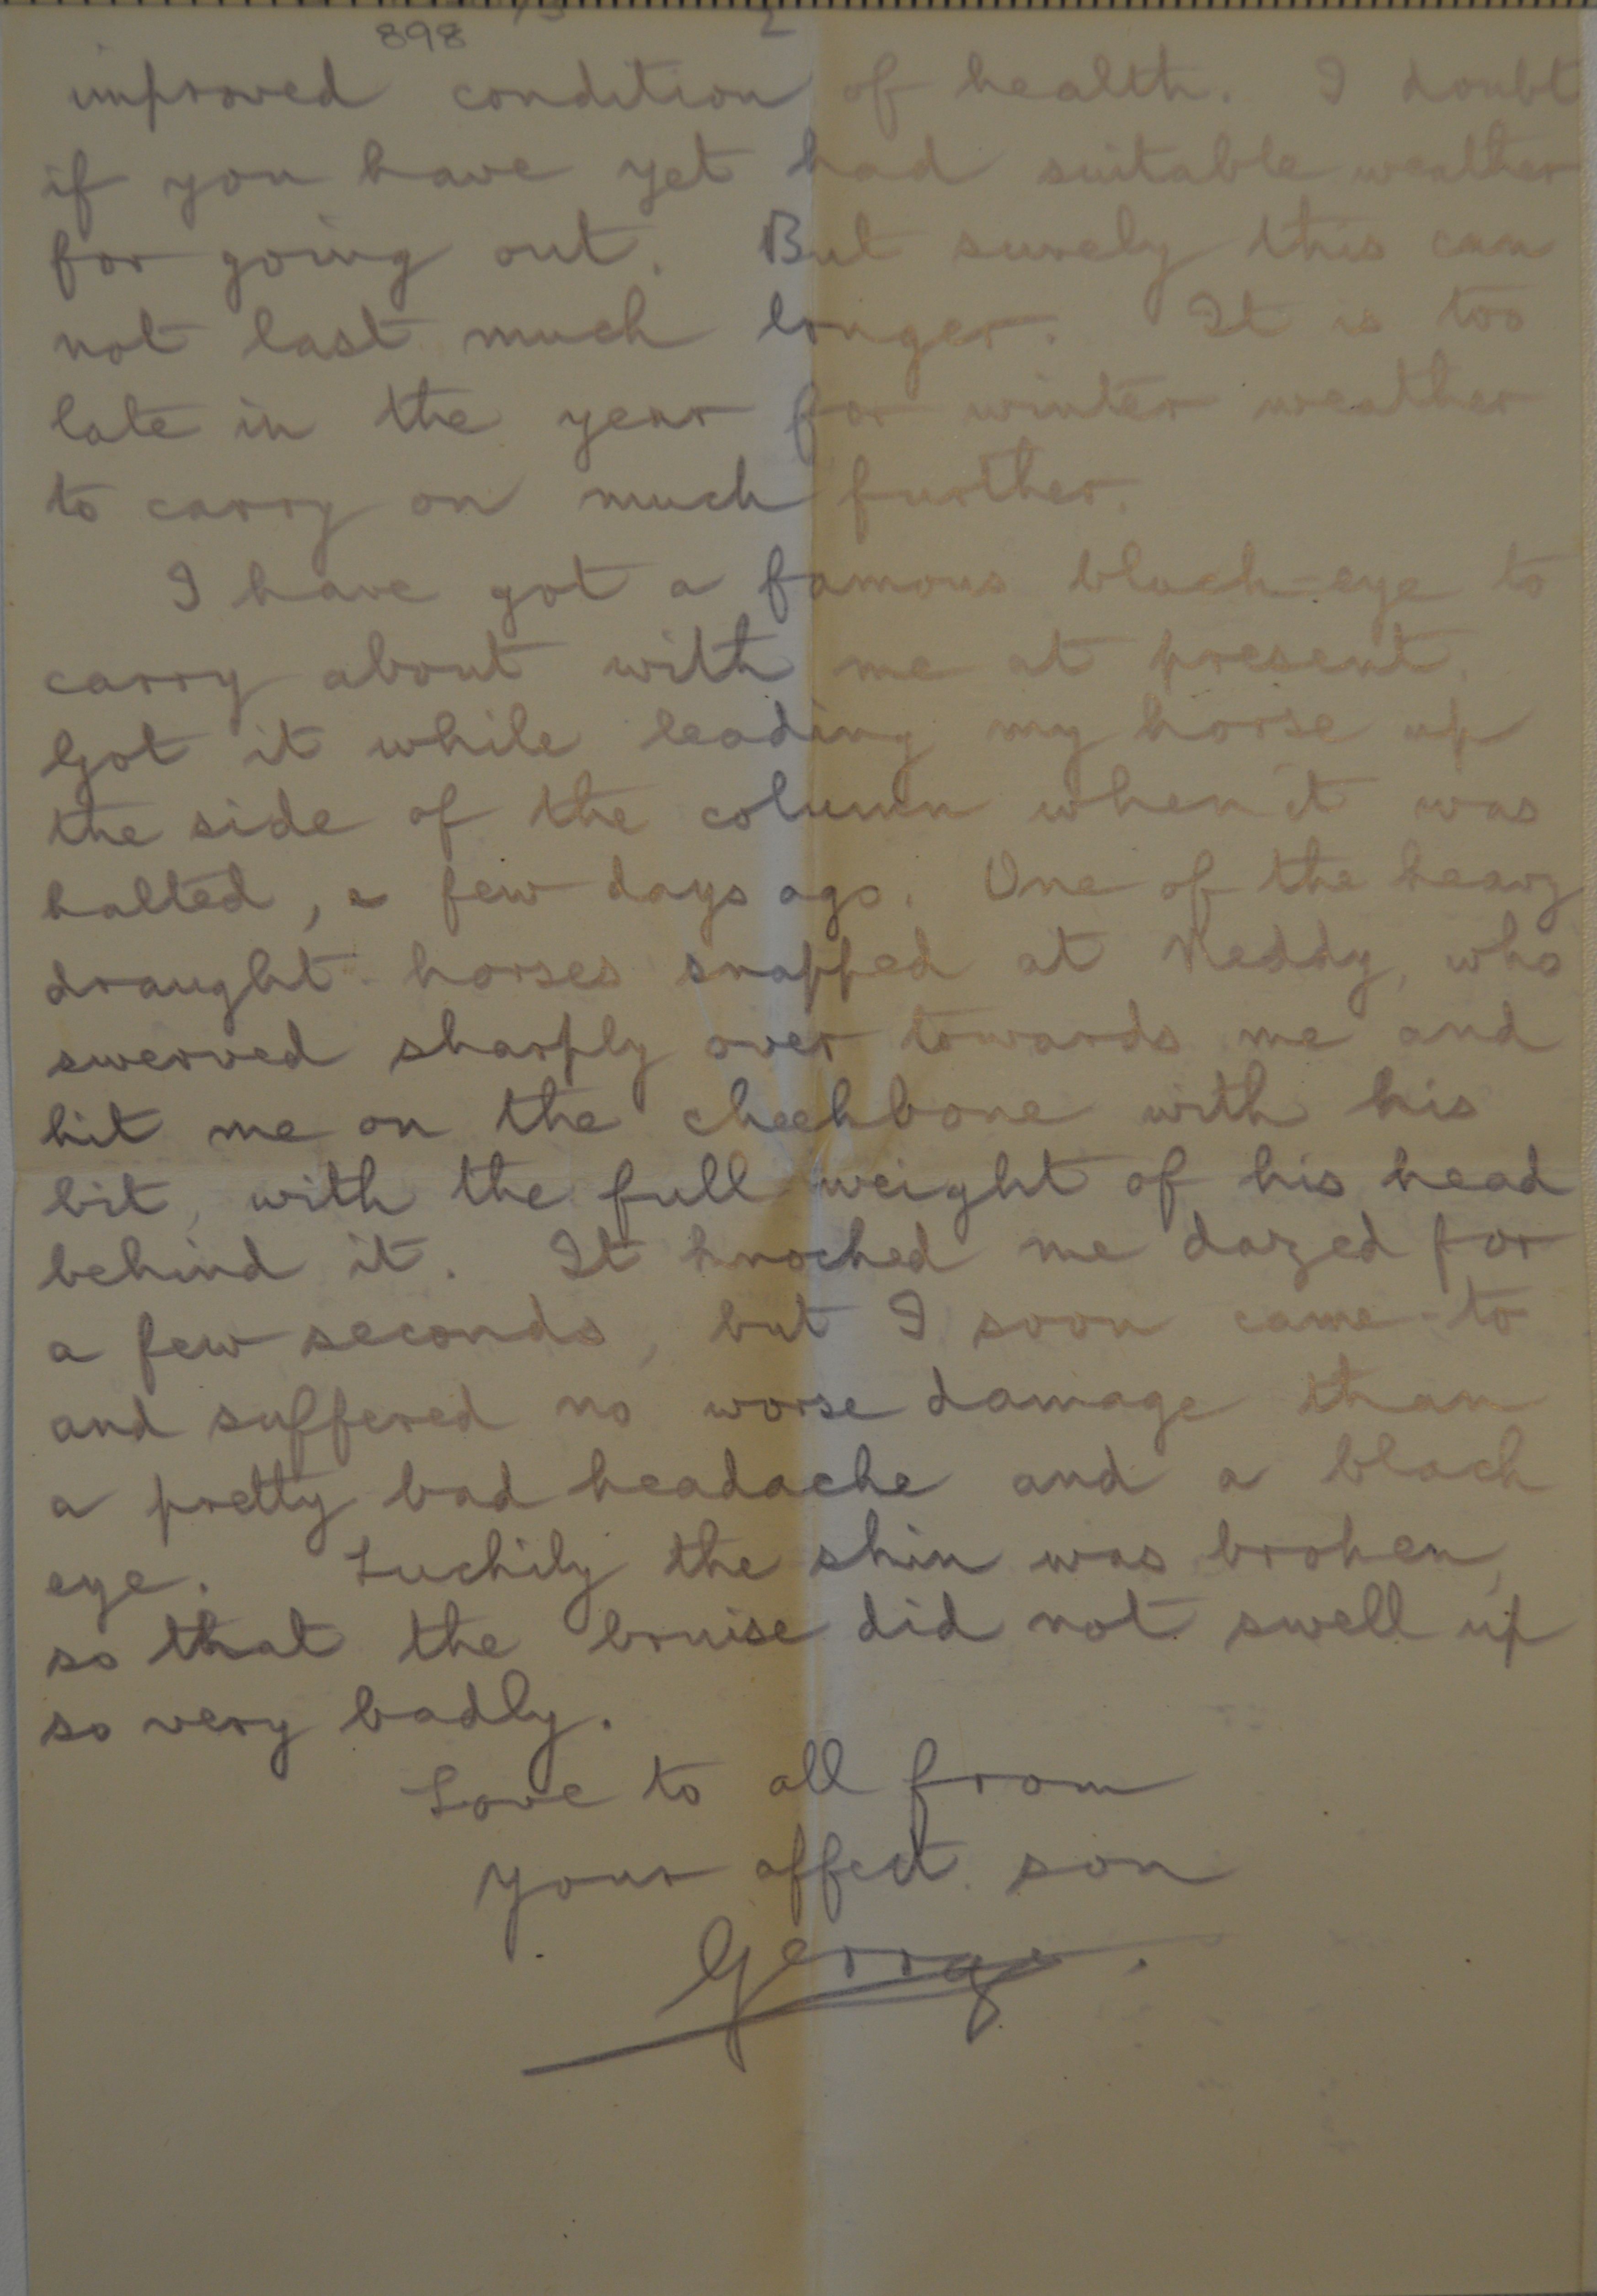 898 2
improved condition of health. I doubt
if you have yet had suitable weather
for going out. But surely this can
not last much longer. It is too
late in the year for winter weather
to carry on much further.
I have got a famous black-eye to
carry about with me at present.
Got it while leading my horse up
the side of the column when it was
halted, a few days ago. One of the heavy
draught horses snapped at Neddy, who
swerved sharply over towards me and
hit me on the cheekbone with his
bit, with the full weight of his head
behind it. It knocked me dazed for
a few seconds, but I soon came-to
and suffered no worse damage than
a pretty bad headache and a black
eye. Luckily the skin was broken,
so that the bruise did not swell up
so very badly.
Love to all from
your affect. son
George.